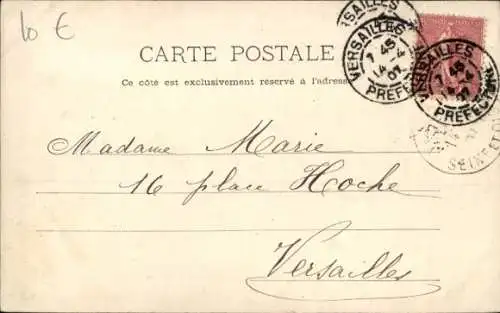 10 €
CARTE POSTALE
Ce côté est exclusivement réservé à l'adresse
VERSAILLES
7 45
14-4
PREFECTURE
VERSAILLES
7 45
PREFECTURE
SEINE ET
Madame Marie
16 place Hoche
Versailles